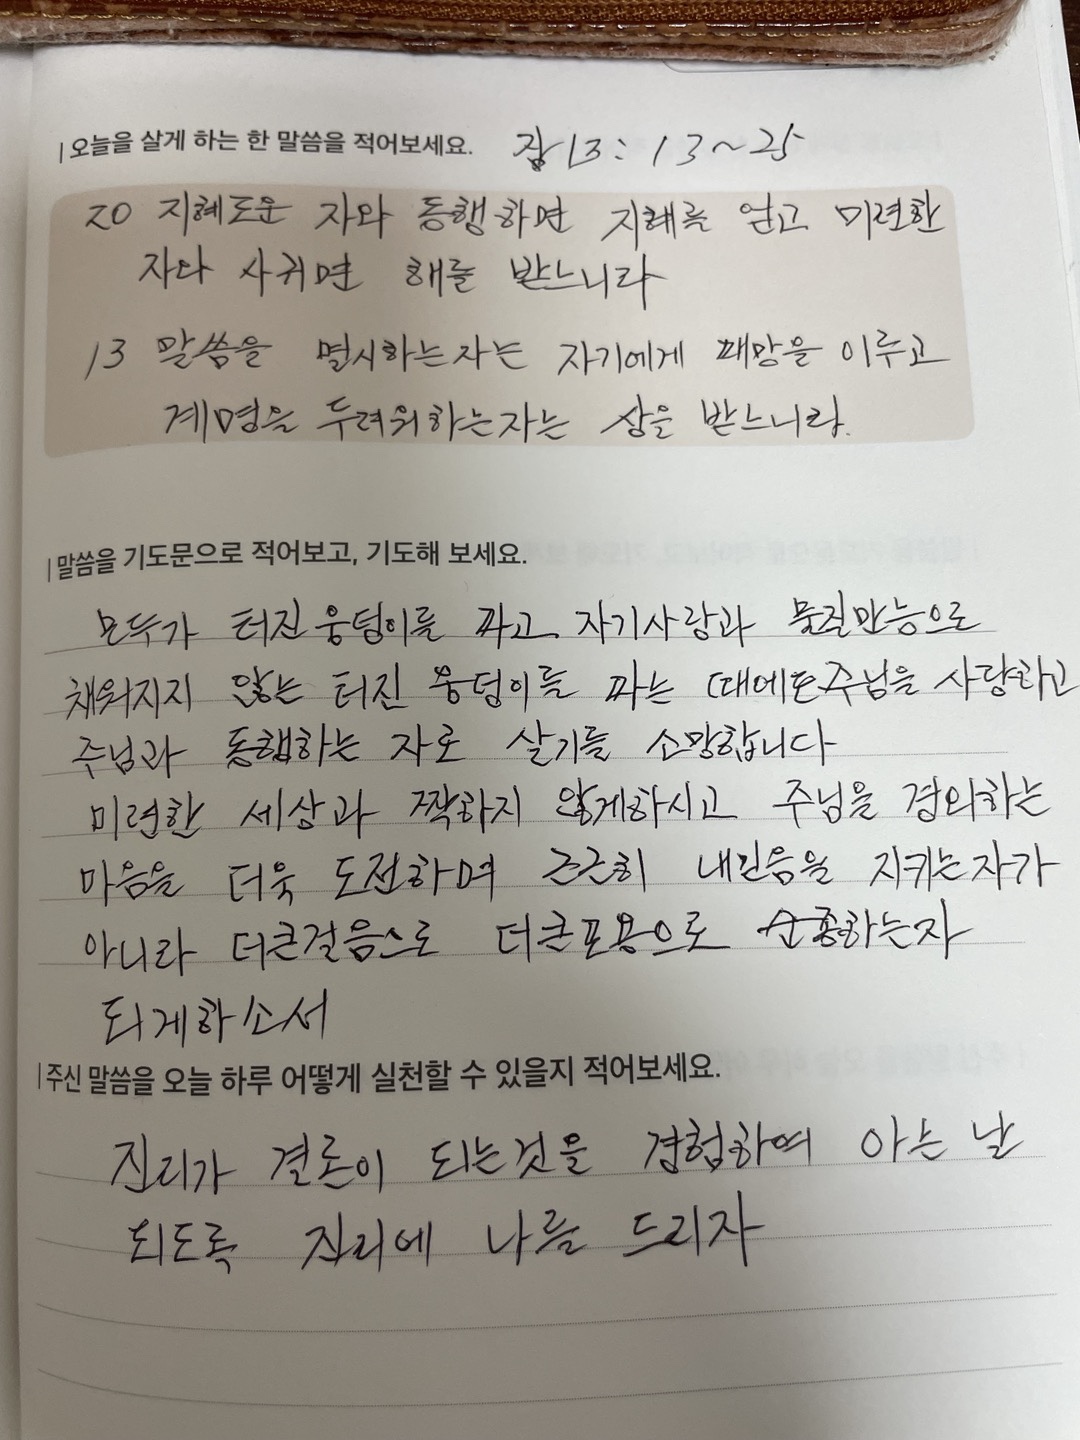 오늘을 살게 하는 한 말씀을 적어보세요. 잠 13 : 13 ~ 25
20 지혜로운 자와 동행하면 지혜를 얻고 미련한
자와 사귀면 해를 받느니라
13 말씀을 멸시하는자는 자기에게 패망을 이루고
계명을 두려워하는자는 상을 받느니라.
말씀을 기도문으로 적어보고, 기도해 보세요.
모두가 터진 웅덩이를 파고 자기사랑과 물질만능으로
채워지지 않는 터진 웅덩이를 파는 때에도 주님을 사랑하고
주님과 동행하는 자로 살기를 소망합니다
미련한 세상과 짝하지 않게하시고 주님을 경외하는
마음을 더욱 도전하며 근근히 내믿음을 지키는자가
아니라 더큰걸음으로 더큰포용으로 순종하는자
되게하소서
주신 말씀을 오늘 하루 어떻게 실천할 수 있을지 적어보세요.
진리가 결론이 되는것을 경험하여 아는 날
되도록 진리에 나를 드리자